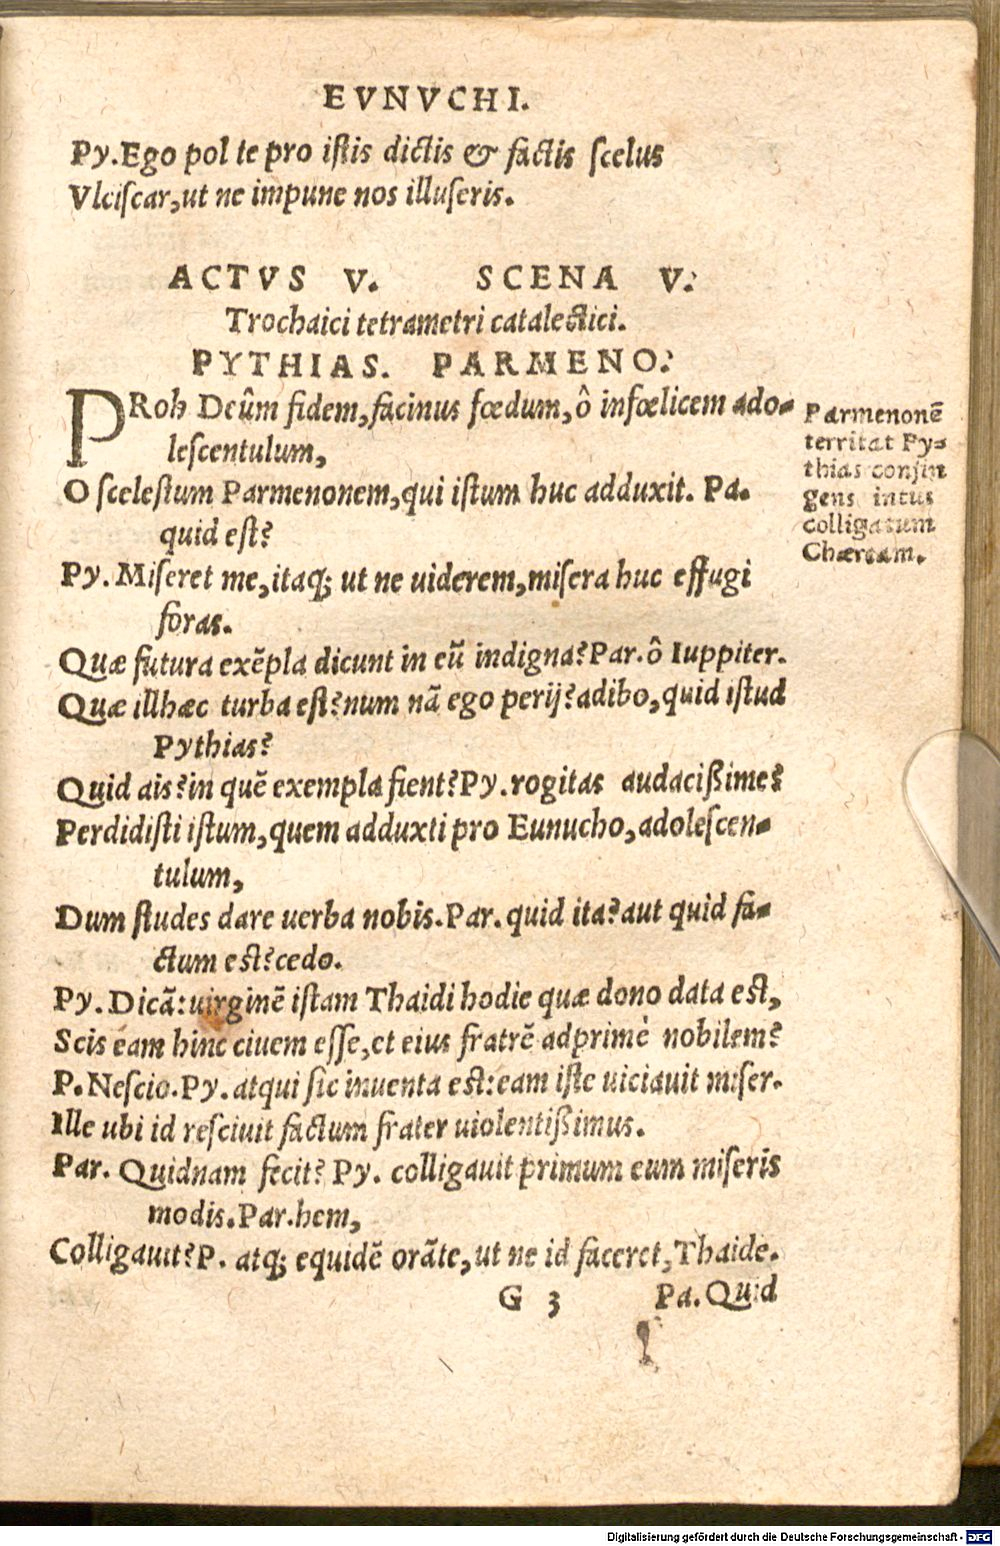 EVNVCHI.
Py. Ego pol te pro istis dictis & factis scelus
Vlciscar, ut ne impune nos illuseris.
ACTVS V. SCENA V.
Trochaici tetrametri catalectici.
PYTHIAS. PARMENO.
PRoh Deûm fidem, facinus fœdum, ô infœlicem ado-
lescentulum,
O scelestum Parmenonem, qui istum huc adduxit. Pa.
quid est?
Py. Miseret me, itaq; ut ne uiderem, misera huc effugi
foras.
Quæ futura exẽpla dicunt in eũ indigna? Par. ô Iuppiter.
Quæ illhæc turba est? num nã ego perij? adibo, quid istud
Pythias?
Quid ais? in quẽ exempla fient? Py. rogitas audacißime?
Perdidisti istum, quem adduxti pro Eunucho, adolescen-
tulum,
Dum studes dare uerba nobis. Par. quid ita? aut quid fa-
ctum est? cedo.
Py. Dicã: uirginẽ istam Thaidi hodie quæ dono data est,
Scis eam hinc ciuem esse, et eius fratrẽ adprimè nobilem?
P. Nescio. Py. atqui sic inuenta est: eam iste uiciauit miser.
Ille ubi id resciuit factum frater uiolentißimus.
Par. Quidnam fecit? Py. colligauit primum eum miseris
modis. Par. hem,
Colligauit? P. atq; equidẽ orãte, ut ne id faceret, Thaide.
G 3 Pa. Quid
Parmenonẽ
territat Py-
thias confin
gens intus
colligatum
Chæream.
Digitalisierung gefördert durch die Deutsche Forschungsgemeinschaft - DFG